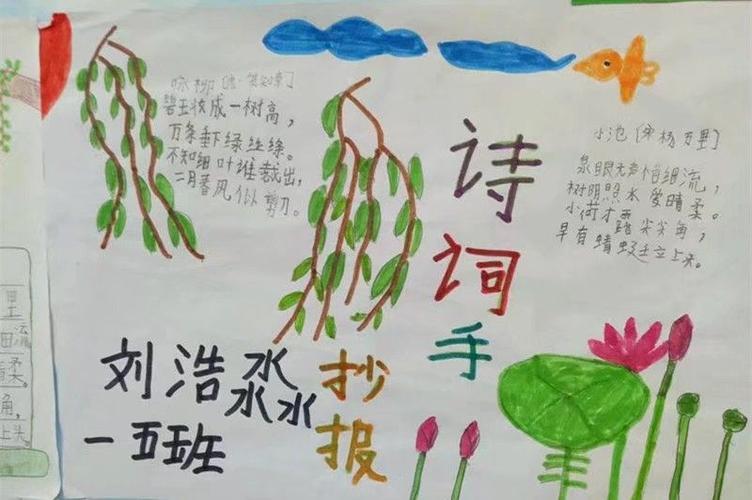 咏柳[唐·贺知章]
碧玉妆成一树高，
万条垂绿丝绦。
不知细叶谁裁出，
二月春风似剪刀。
小池[宋 杨万里]
泉眼无声惜细流，
树阴照水爱晴柔。
小荷才露尖尖角，
早有蜻蜓立上头。
诗词手抄报
刘浩淼
一五班
里
柔。
角，
上头。